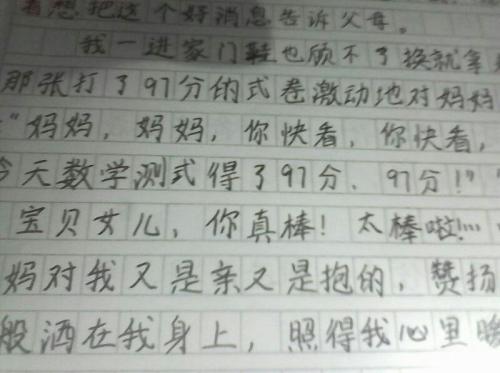 着想把这个好消息告诉父母。
我一进家门鞋也顾不了换就拿
那张打了97分的式卷激动地对妈妈
“妈妈，妈妈，你快看，你快看，
天数学测式得了97分、97分！”
宝贝女儿，你真棒！太棒啦！…
妈对我又是亲又是抱的，赞扬
般洒在我身上，照得我心里暖